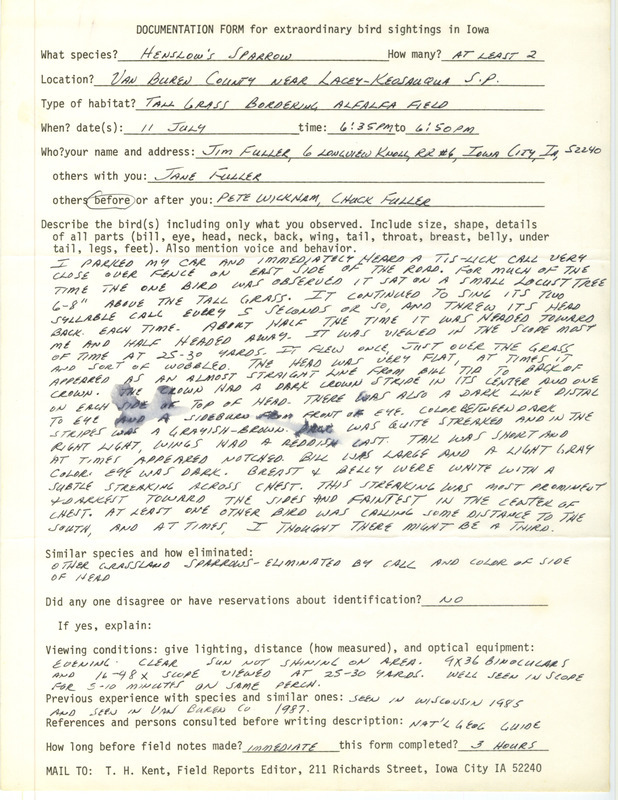 DOCUMENTATION FORM for extraordinary bird sightings in Iowa
What species? HENSLOW'S SPARROW How many? AT LEAST 2
Location? VAN BUREN COUNTY NEAR LACEY-KEOSAUQUA S.P.
Type of habitat? TALL GRASS BORDERING ALFALFA FIELD
When? date(s): 11 JULY time: 6:35PM to 6:50PM
Who?your name and address: JIM FULLER, 6 LONGVIEW KNOLL, RR #6, IOWA CITY, IA, 52240
others with you: JANE FULLER
others before or after you: PETE WICKHAM, CHUCK FULLER
Describe the bird(s) including only what you observed. Include size, shape, details
of all parts (bill, eye, head, neck, back, wing, tail, throat, breast, belly, under
tail, legs, feet). Also mention voice and behavior.
I PARKED MY CAR AND IMMEDIATELY HEARD A TIS-LICK CALL VERY
CLOSE OVER FENCE ON EAST SIDE OF THE ROAD. FOR MUCH OF THE
TIME THE ONE BIRD WAS OBSERVED IT SAT ON A SMALL LOCUST TREE
6-8" ABOVE THE TALL GRASS. IT CONTINUED TO SING ITS TWO
SYLLABLE CALL EVERY 5 SECONDS OR SO, AND THREW ITS HEAD
BACK EACH TIME. ABOUT HALF THE TIME IT WAS HEADED TOWARD
ME AND HALF HEADED AWAY. IT WAS VIEWED IN THE SCOPE MOST
OF TIME AT 25-30 YARDS. IT FLEW ONCE, JUST OVER THE GRASS
AND SORT OF WOBBLED. THE HEAD WAS VERY FLAT, AT TIMES IT
APPEARED AS AN ALMOST STRAIGHT LINE FROM BILL TIP TO BACK OF
CROWN. THE CROWN HAD A DARK CROWN STRIDE IN ITS CENTER AND ONE
ON EACH SIDE OF TOP OF HEAD. THERE WAS ALSO A DARK LINE DISTAL
TO EYE AND A SIDEBURN FROM FRONT OF EYE. COLOR BETWEEN DARK
STRIPES WAS A GRAYISH-BROWN. WAS QUITE STREAKED AND IN THE
RIGHT LIGHT, WINGS HAD A REDDISH CAST. TAIL WAS SHORT AND
AT TIMES APPEARED NOTCHED. BILL WAS LARGE AND A LIGHT GRAY
COLOR. EYE WAS DARK. BREAST & BELLY WERE WHITE WITH A
SUBTLE STREAKING ACROSS CHEST. THIS STREAKING WAS MOST PROMINENT
& DARKEST TOWARD THE SIDES AND FAINTEST IN THE CENTER OF
CHEST. AT LEAST ONE OTHER BIRD WAS CALLING SOME DISTANCE TO THE
SOUTH, AND AT TIMES, I THOUGHT THERE MIGHT BE A THIRD.
Similar species and how eliminated:
OTHER GRASSLAND SPARROWS - ELIMINATED BY CALL AND COLOR OF SIDE
OF HEAD
Did any one disagree or have reservations about identification? NO
If yes, explain:
Viewing conditions: give lighting, distance (how measured), and optical equipment:
EVENING. CLEAR SUN NOT SHINING ON AREA. 9X36 BINOCULARS
AND 16-48X SCOPE VIEWED AT 25-30 YARDS. WELL SEEN IN SCOPE
FOR 5-10 MINUTES ON SAME PERCH.
Previous experience with species and similar ones: SEEN IN WISCONSIN 1985
AND SEEN IN VAN BUREN CO 1987.
References and persons consulted before writing description: NAT'L GEOG GUIDE
How long before field notes made? IMMEDIATE this form completed? 3 HOURS
MAIL TO: T. H. Kent, Field Reports Editor, 211 Richards Street, Iowa City IA 52240